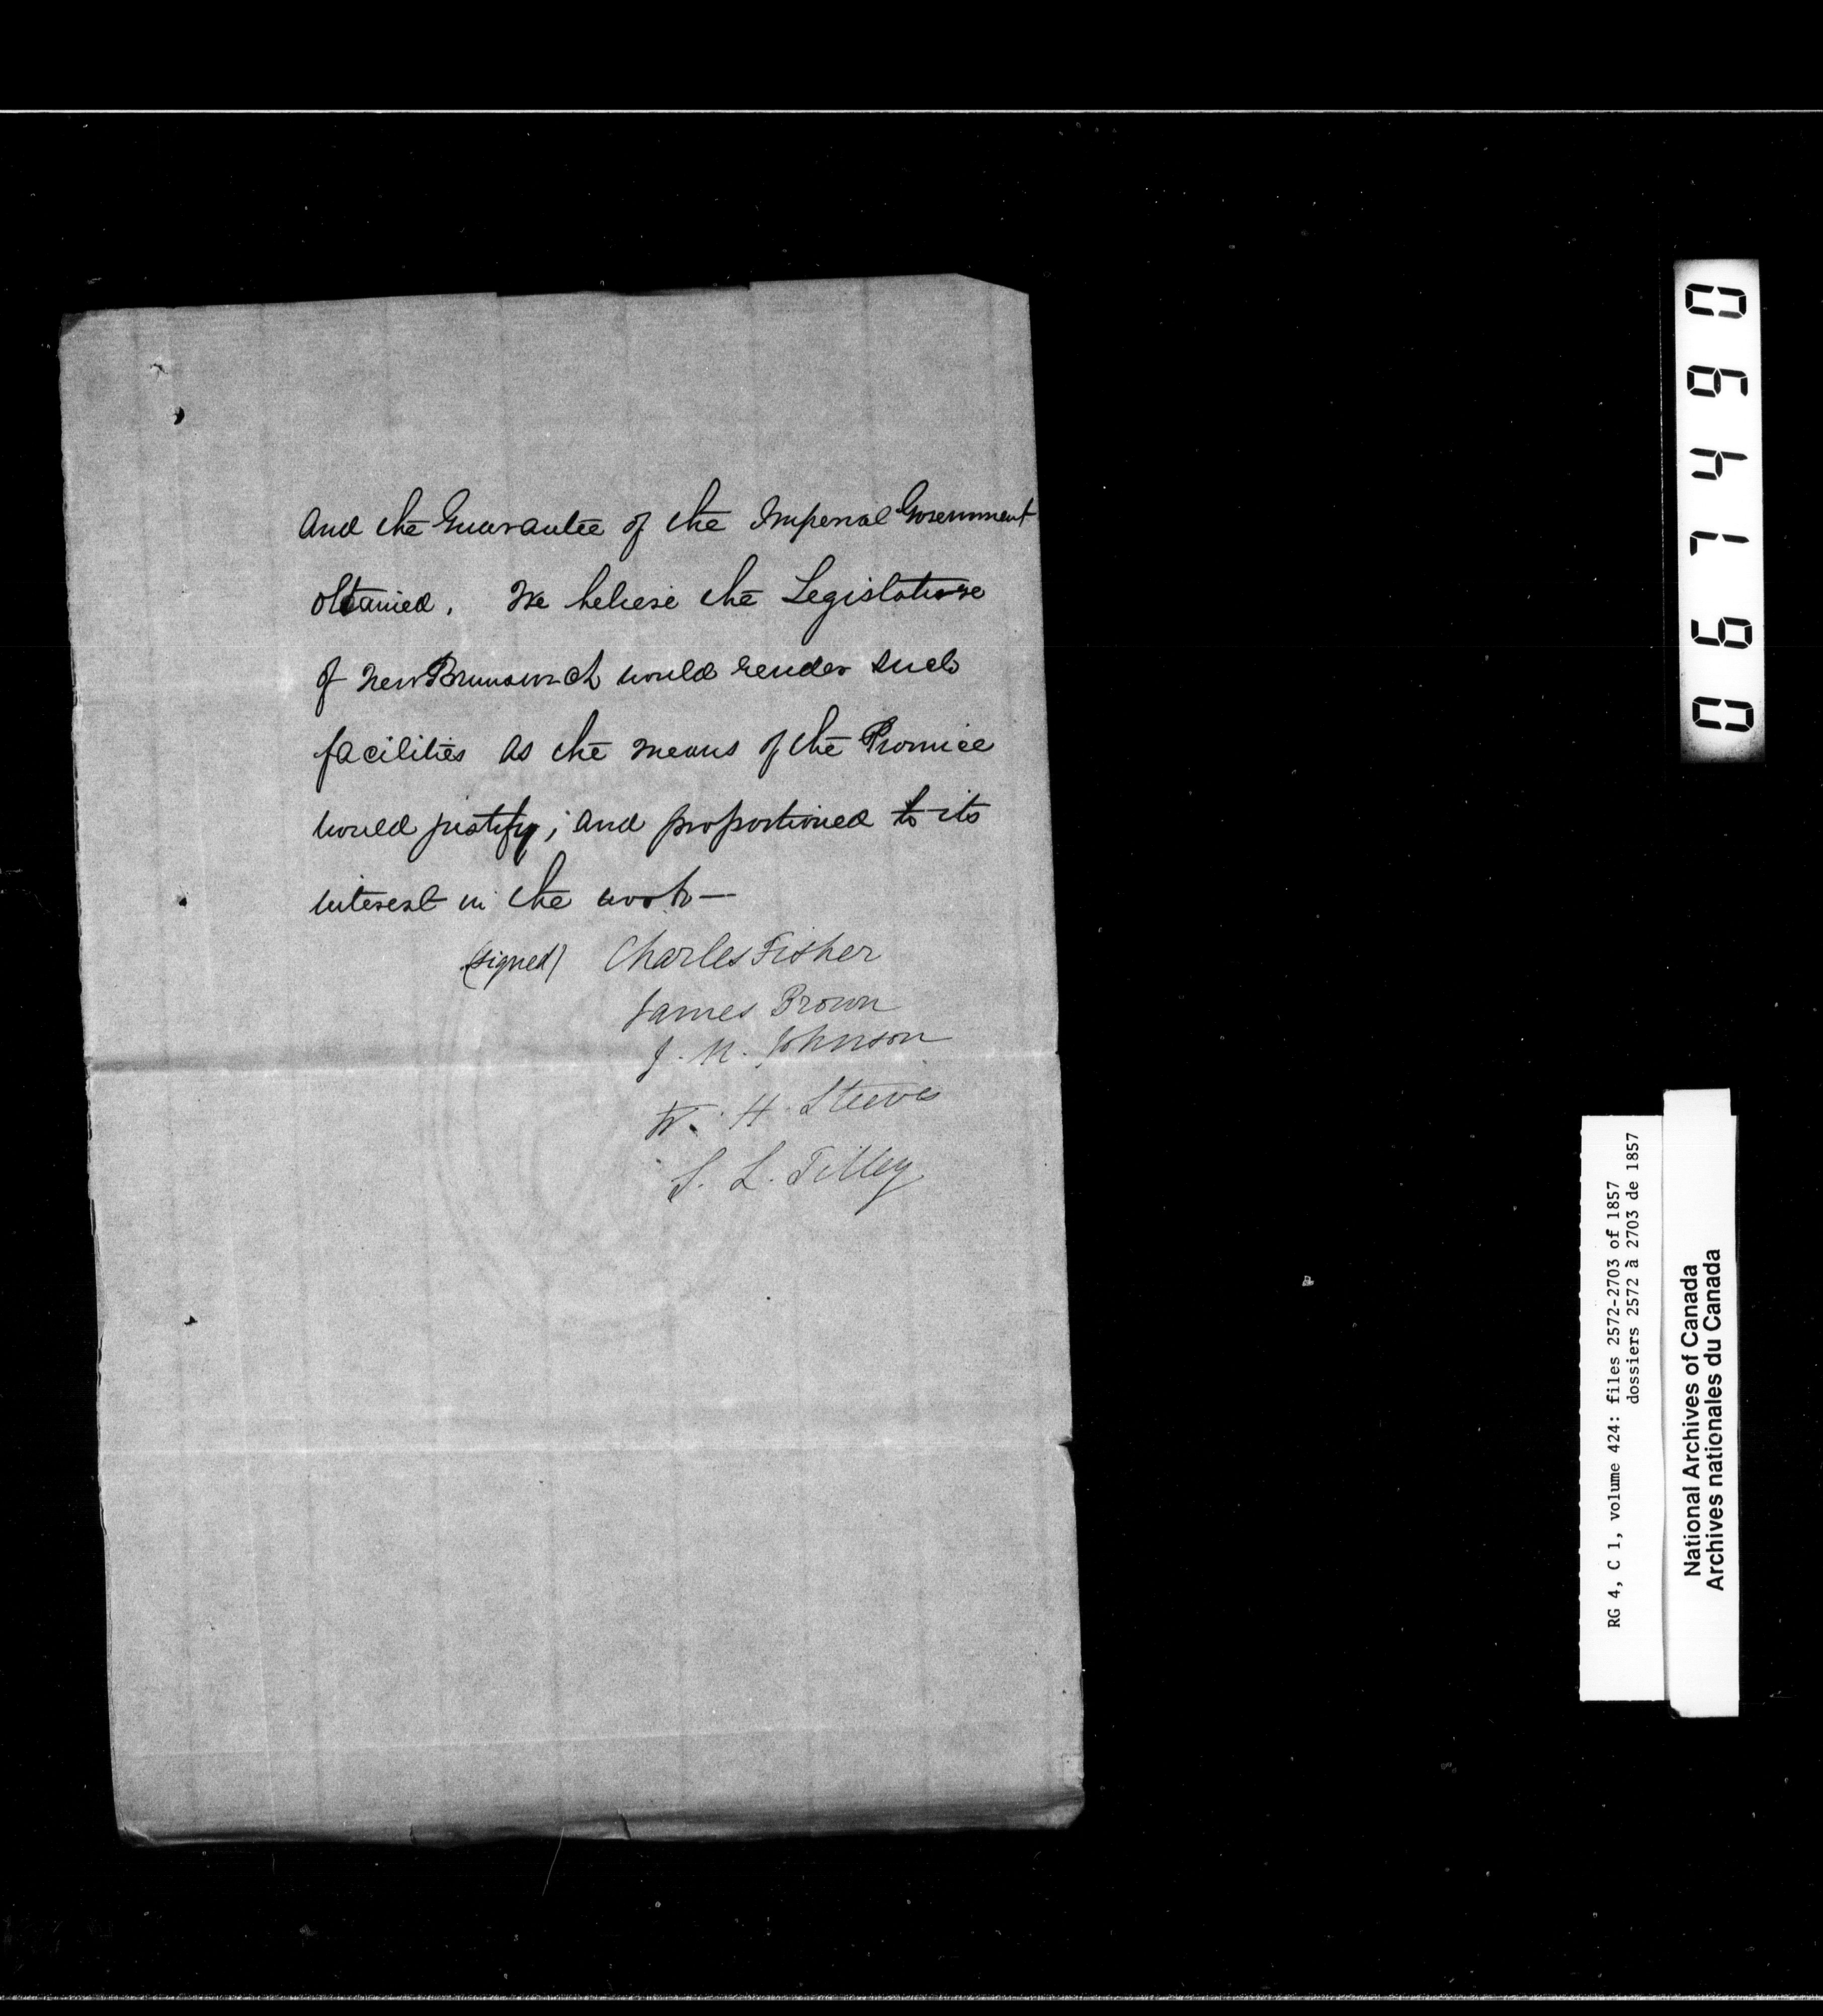 and the Guarantee of the Imperial Government
obtained. We believe the Legislature
of New Brunswick would render such
facilities as the means of the Province
would justify; and proportioned to its
interest in the work—
(signed) Charles Fisher
James Brown
J. M. Johnson
W. H. Steeves
S. L. Tilley
067490
RG 4, C 1, volume 424: files 2572-2703 of 1857
dossiers 2572 à 2703 de 1857
National Archives of Canada
Archives nationales du Canada